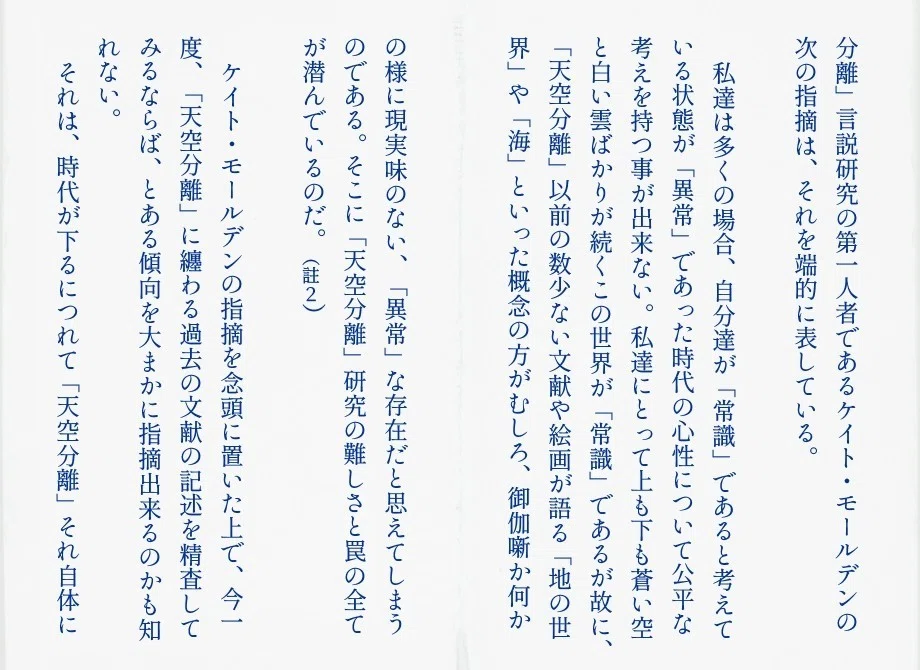 分離」言説研究の第一人者であるケイト・モールデンの
次の指摘は、それを端的に表している。
私達は多くの場合、自分達が「常識」であると考えて
いる状態が「異常」であった時代の心性について公平な
考えを持つ事が出来ない。私達にとって上も下も蒼い空
と白い雲ばかりが続くこの世界が「常識」であるが故に、
「天空分離」以前の数少ない文献や絵画が語る「地の世
界」や「海」といった概念の方がむしろ、御伽噺か何か
の様に現実味のない、「異常」な存在だと思えてしまう
のである。そこに「天空分離」研究の難しさと罠の全て
が潜んでいるのだ。（註2）
ケイト・モールデンの指摘を念頭に置いた上で、今一
度、「天空分離」に纏わる過去の文献の記述を精査して
みるならば、とある傾向を大まかに指摘出来るのかも知
れない。
それは、時代が下るにつれて「天空分離」それ自体に